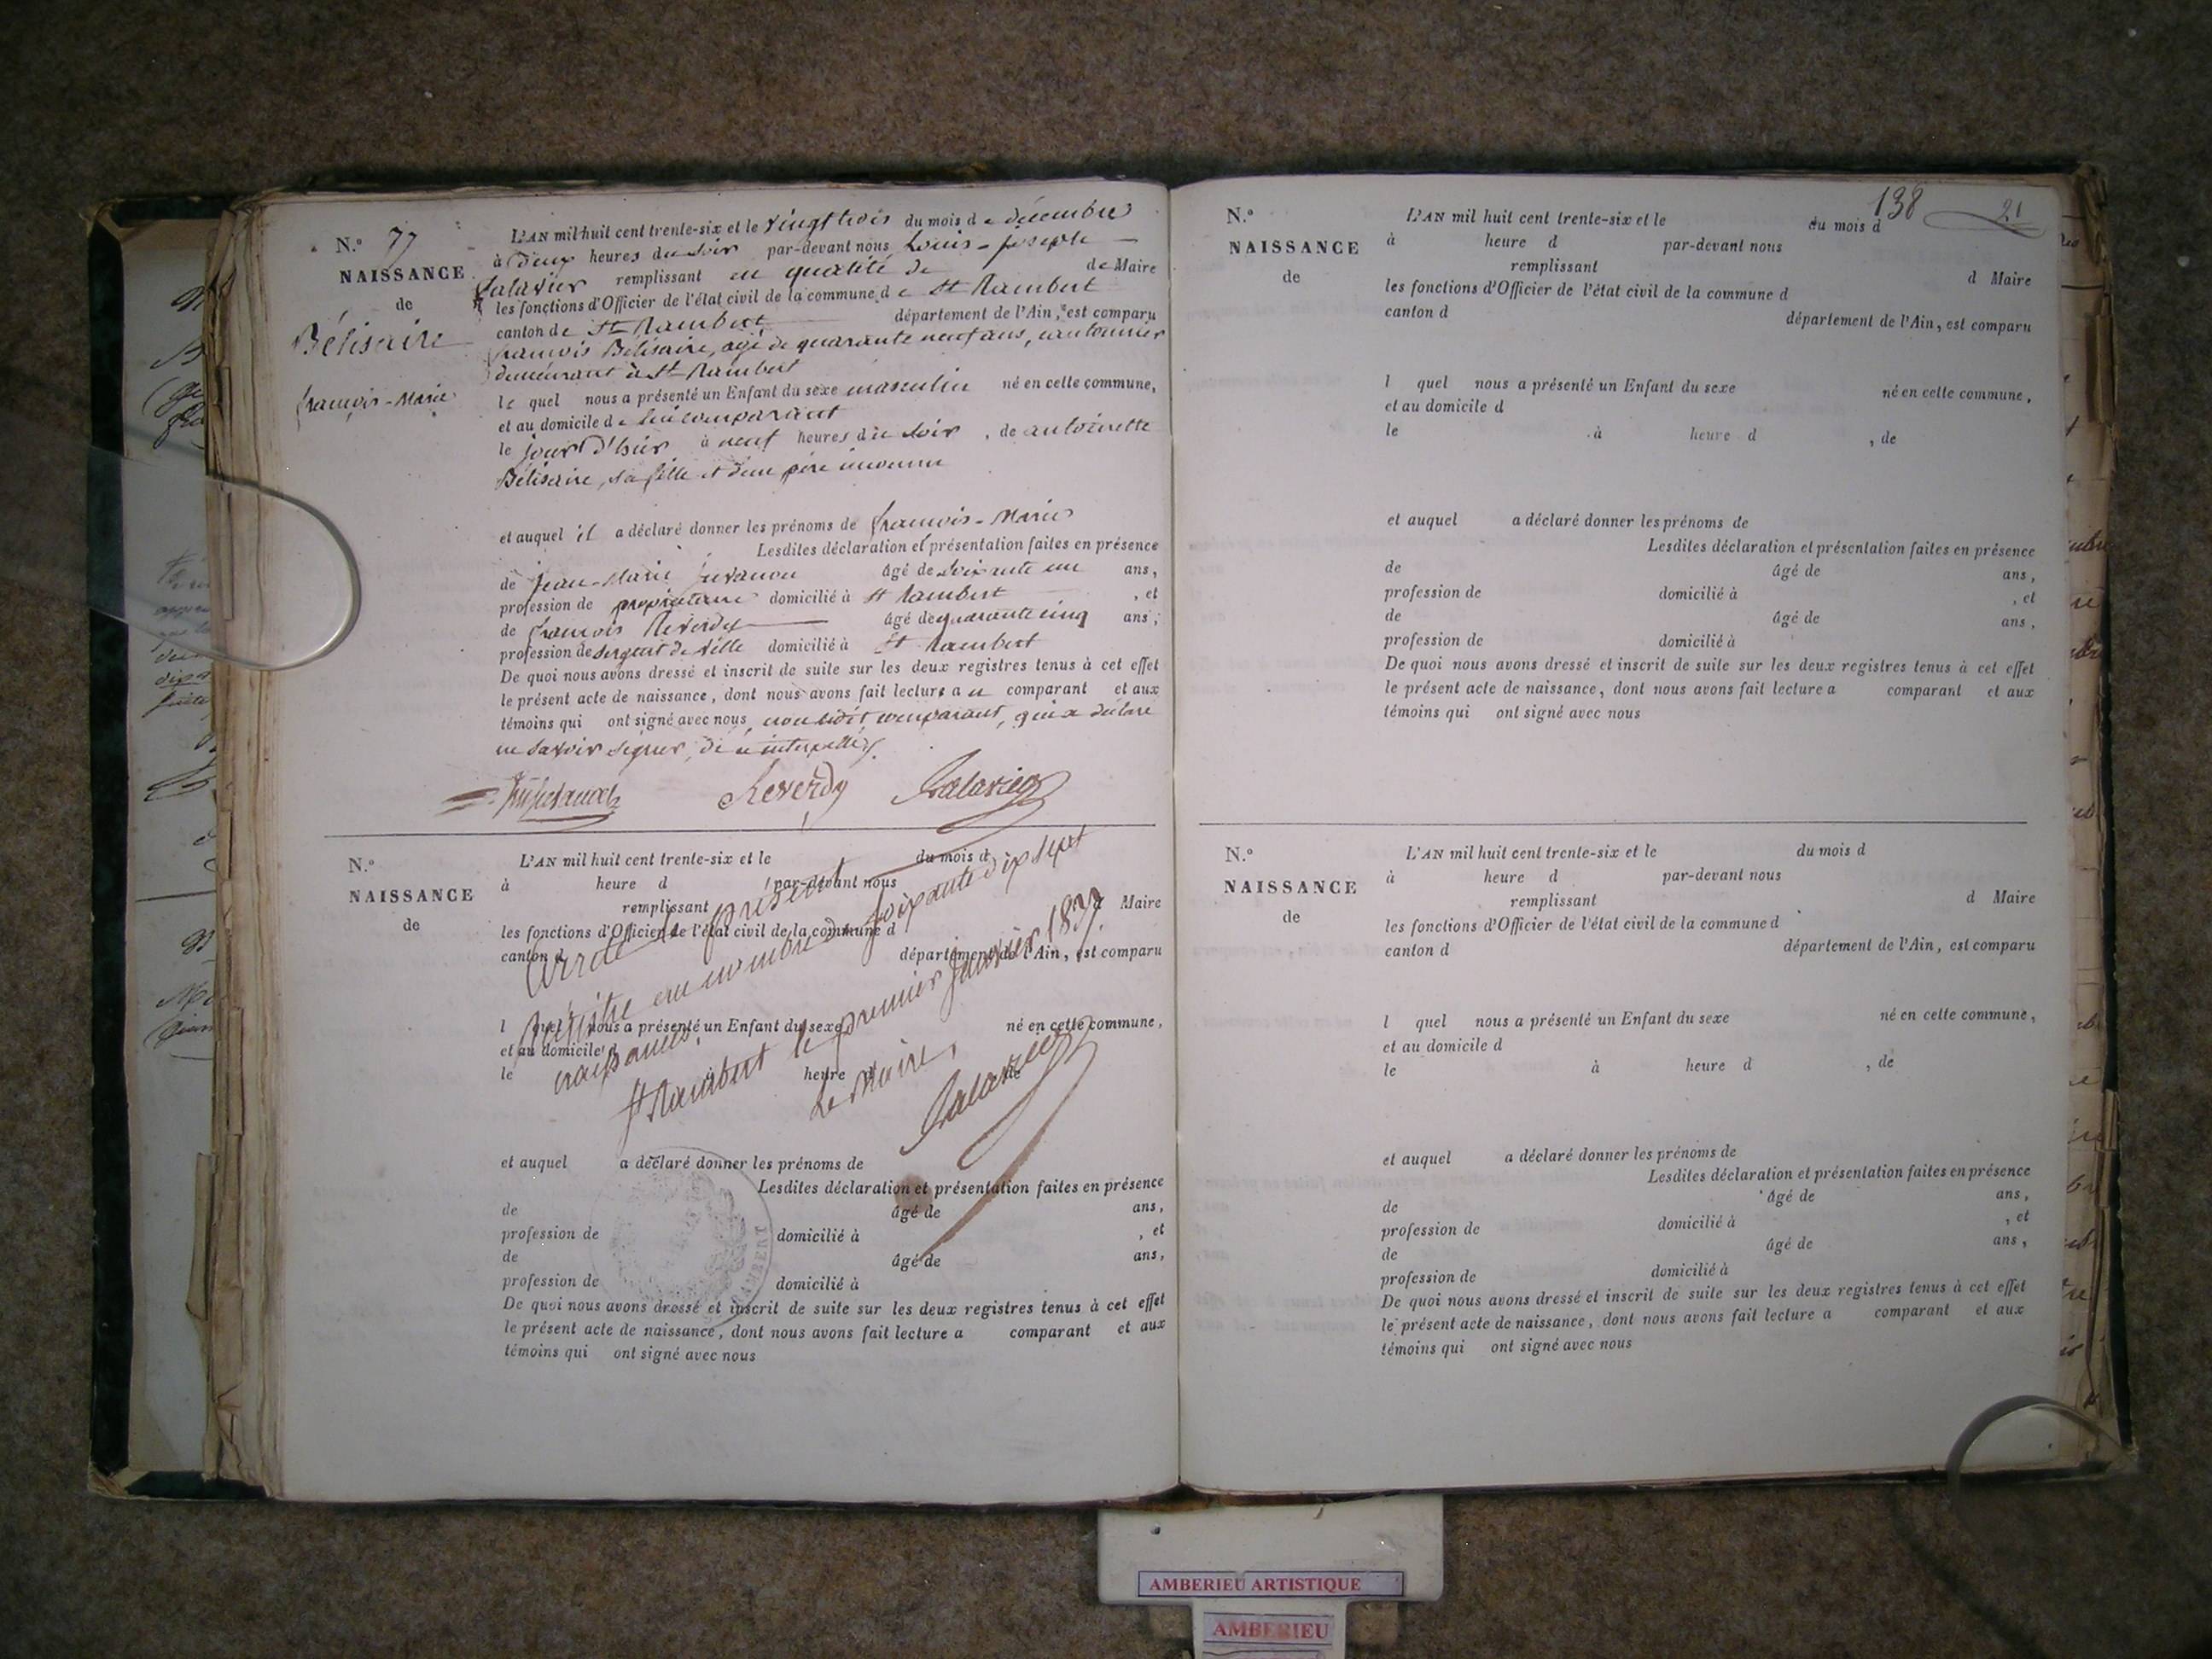 N.º 77
NAISSANCE
de
Bélisaire
françois-Marie
L'AN mil huit cent trente-six et le vingt trois du mois de décembre
à deux heures du soir par-devant nous Louis-joseph
Salavier remplissant en qualité de de Maire
les fonctions d'Officier de l'état civil de la commune de St Rambert
canton de St Rambert département de l'Ain, est comparu
françois Bélisaire, agé de quarante neuf ans, cantonnier
demeurant à St Rambert
le quel nous a présenté un Enfant du sexe masculin né en cette commune,
et au domicile de lui comparant
le jour d'hier à neuf heures du soir, de antoinette
Bélisaire, sa fille et d'un père inconnu
et auquel il a déclaré donner les prénoms de françois-Marie
Lesdites déclaration et présentation faites en présence
de Jean-Marie âgé de soixante un ans,
profession de propriétaire domicilié à St Rambert, et
de françois Reverdy âgé de quarante cinq ans,
profession de sergent de ville domicilié à St Rambert
De quoi nous avons dressé et inscrit de suite sur les deux registres tenus à cet effet
le présent acte de naissance, dont nous avons fait lecture au comparant et aux
témoins qui ont signé avec nous, non ledit comparant, qui a déclaré
ne savoir signer, de ce interpellé
Reverdy Salavier
N.º
NAISSANCE
de
L'AN mil huit cent trente-six et le du mois d
à heure d par-devant nous
remplissant d Maire
les fonctions d'Officier de l'état civil de la commune d
canton d département de l'Ain, est comparu
l quel nous a présenté un Enfant du sexe né en cette commune,
et au domicile d
le à heure d de
et auquel a déclaré donner les prénoms de
Lesdites déclaration et présentation faites en présence
de âgé de ans,
profession de domicilié à , et
de âgé de ans,
profession de domicilié à
De quoi nous avons dressé et inscrit de suite sur les deux registres tenus à cet effet
le présent acte de naissance, dont nous avons fait lecture a comparant et aux
témoins qui ont signé avec nous
Arrêté le présent
Registre au nombre de soixante dix sept
naissances,
St Rambert le premier janvier 1837.
Le Maire,
Salavier
138 21
N.º
NAISSANCE
de
L'AN mil huit cent trente-six et le du mois d
à heure d par-devant nous
remplissant d Maire
les fonctions d'Officier de l'état civil de la commune d
canton d département de l'Ain, est comparu
l quel nous a présenté un Enfant du sexe né en cette commune,
et au domicile d
le à heure d , de
et auquel a déclaré donner les prénoms de
Lesdites déclaration et présentation faites en présence
de âgé de ans,
profession de domicilié à , et
de âgé de ans,
profession de domicilié à
De quoi nous avons dressé et inscrit de suite sur les deux registres tenus à cet effet
le présent acte de naissance, dont nous avons fait lecture a comparant et aux
témoins qui ont signé avec nous
N.º
NAISSANCE
de
L'AN mil huit cent trente-six et le du mois d
à heure d par-devant nous
remplissant d Maire
les fonctions d'Officier de l'état civil de la commune d
canton d département de l'Ain, est comparu
l quel nous a présenté un Enfant du sexe né en cette commune,
et au domicile d
le à heure d , de
et auquel a déclaré donner les prénoms de
Lesdites déclaration et présentation faites en présence
de âgé de ans,
profession de domicilié à , et
de âgé de ans,
profession de domicilié à
De quoi nous avons dressé et inscrit de suite sur les deux registres tenus à cet effet
le présent acte de naissance, dont nous avons fait lecture a comparant et aux
témoins qui ont signé avec nous
AMBERIEU ARTISTIQUE
AMBERIEU